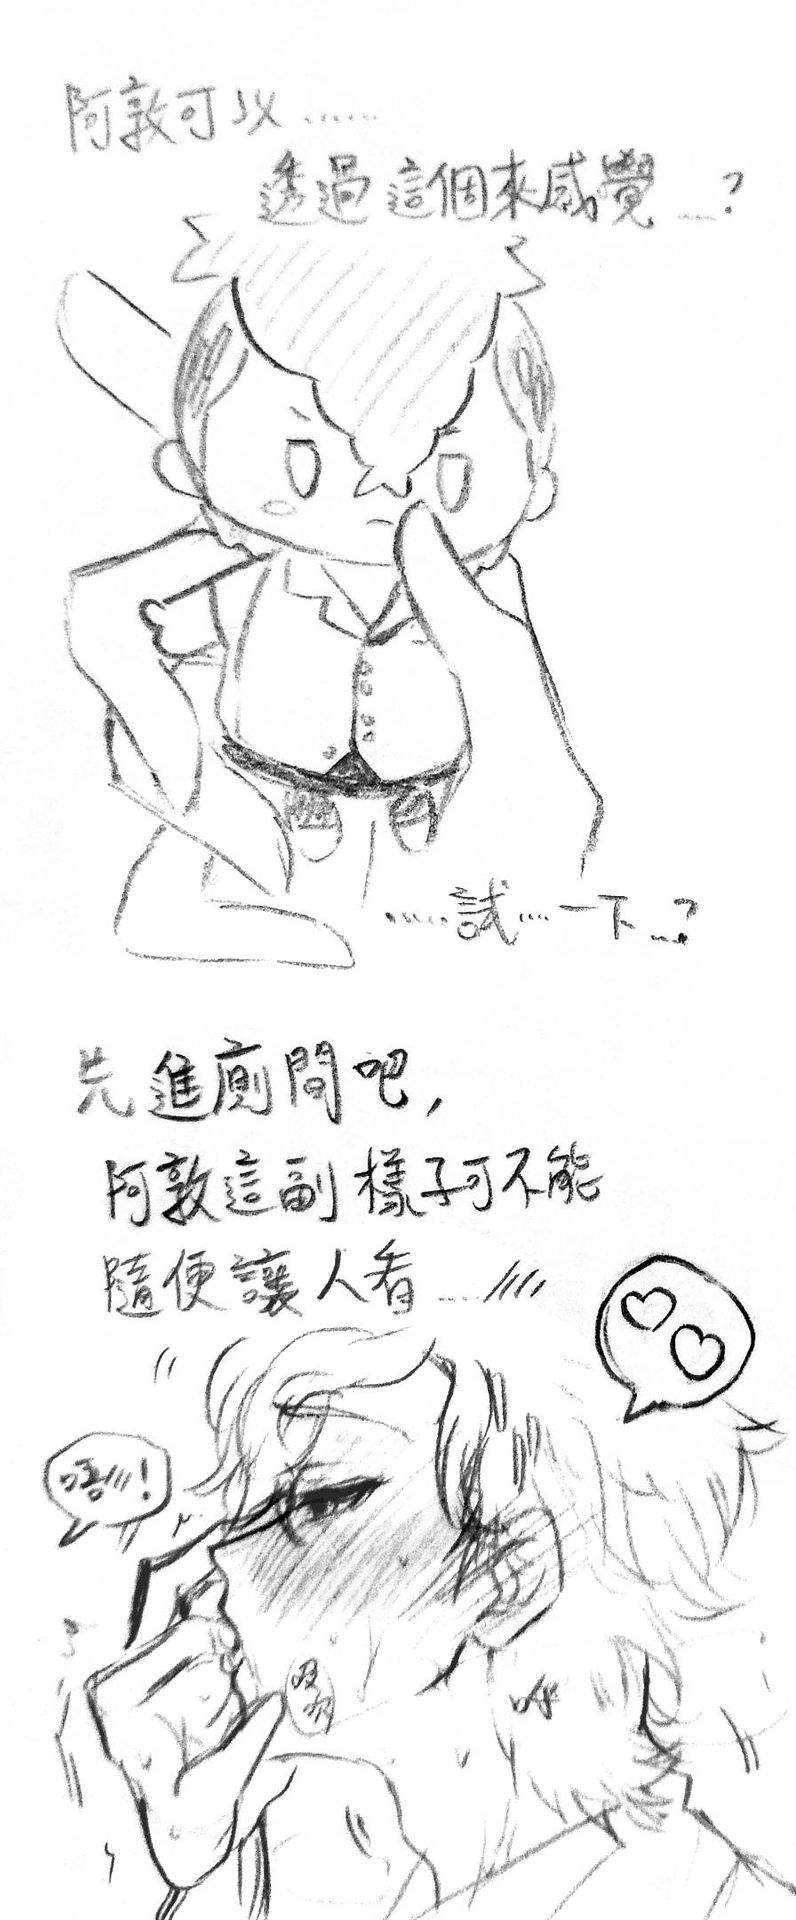 阿敦可以......
透過這個來感覺...?
.....試...一下...?
先進廁間吧,
阿敦這副樣子可不能
隨便讓人看...
唔!